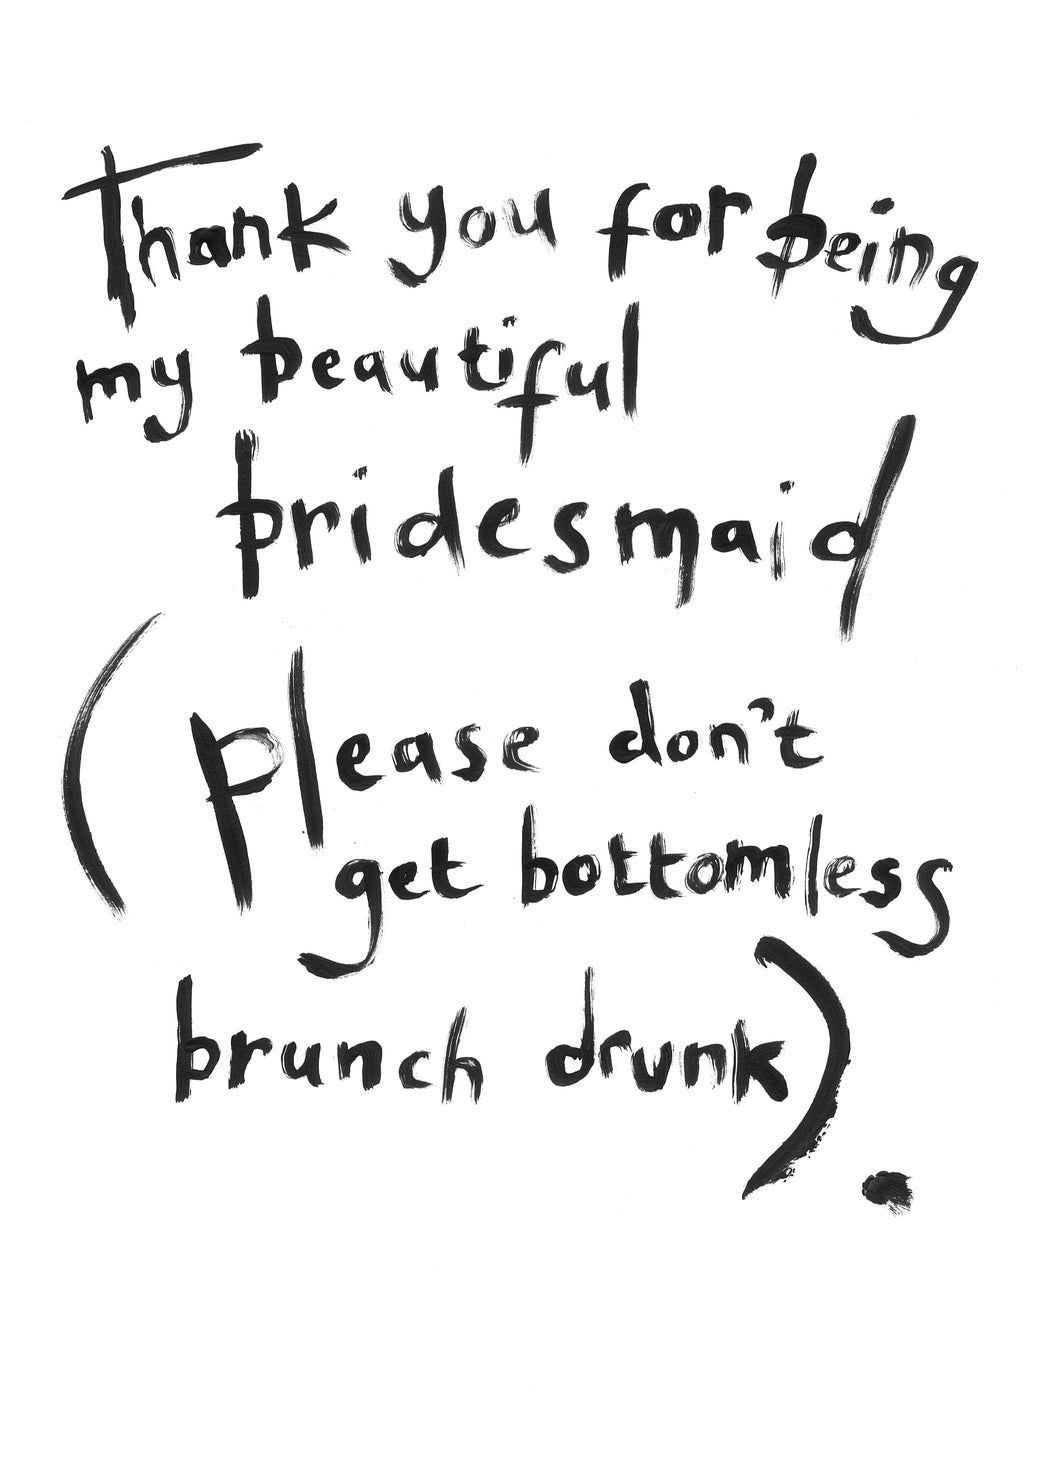 Thank you for being
my beautiful
bridesmaid
(please don't
get bottomless
brunch drunk).